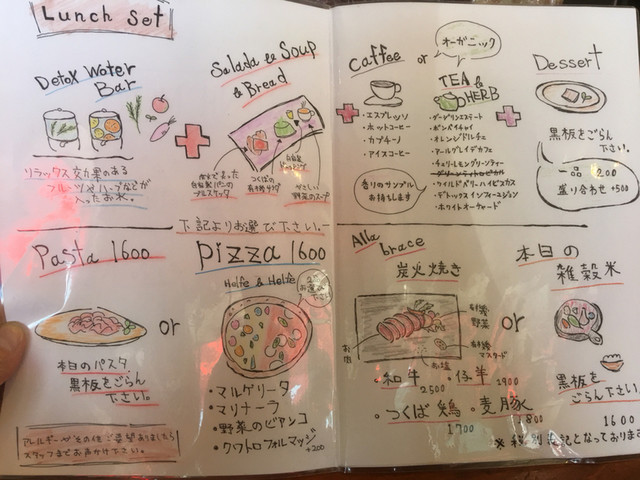 Lunch Set
Detox Water
Bar
リラックス効果のある
フルーツやハーブなどが
入ったお水。
Salada & Soup
& Bread
自家製
ドレッシング
つくばの
有機サラダ
やさしい
野菜のスープ
下記よりお選び下さい。
Pasta 1600
本日のパスタ
黒板をごらん
下さい。
アレルギーやその他ご要望ありましたら
スタッフまでお声かけ下さい。
or
Pizza 1600
Holfe & Holfe
・マルゲリータ
・マリナーラ
・野菜のビアンコ
・クワトロフォルマッジ
+200
Caffee
・エスプレッソ
・ホットコーヒー
・カプチーノ
・アイスコーヒー
香りのサンプル
お持ちします
or
オーガニック
TEA &
HERB
・ダージリンエステート
・ボンベイチャイ
・オレンジドルチェ
・アールグレイデカフェ
・チェリーレモングリーンティー
・グリーンティートロピカル
・ワイルドベリーハイビスカス
・デトックスインフュージョン
・ホワイトオーチャード
Dessert
黒板をごらん
下さい。
一品 200
盛り合わせ +500
Alla
brace
炭火焼き
お肉
お塩
マスタード
・和牛
2500
・仔羊
1900
・つくば鶏
1700
・麦豚
1800
or
本日の
雑穀米
黒板を
ごらん下さい。
1600
※税別表記となっております